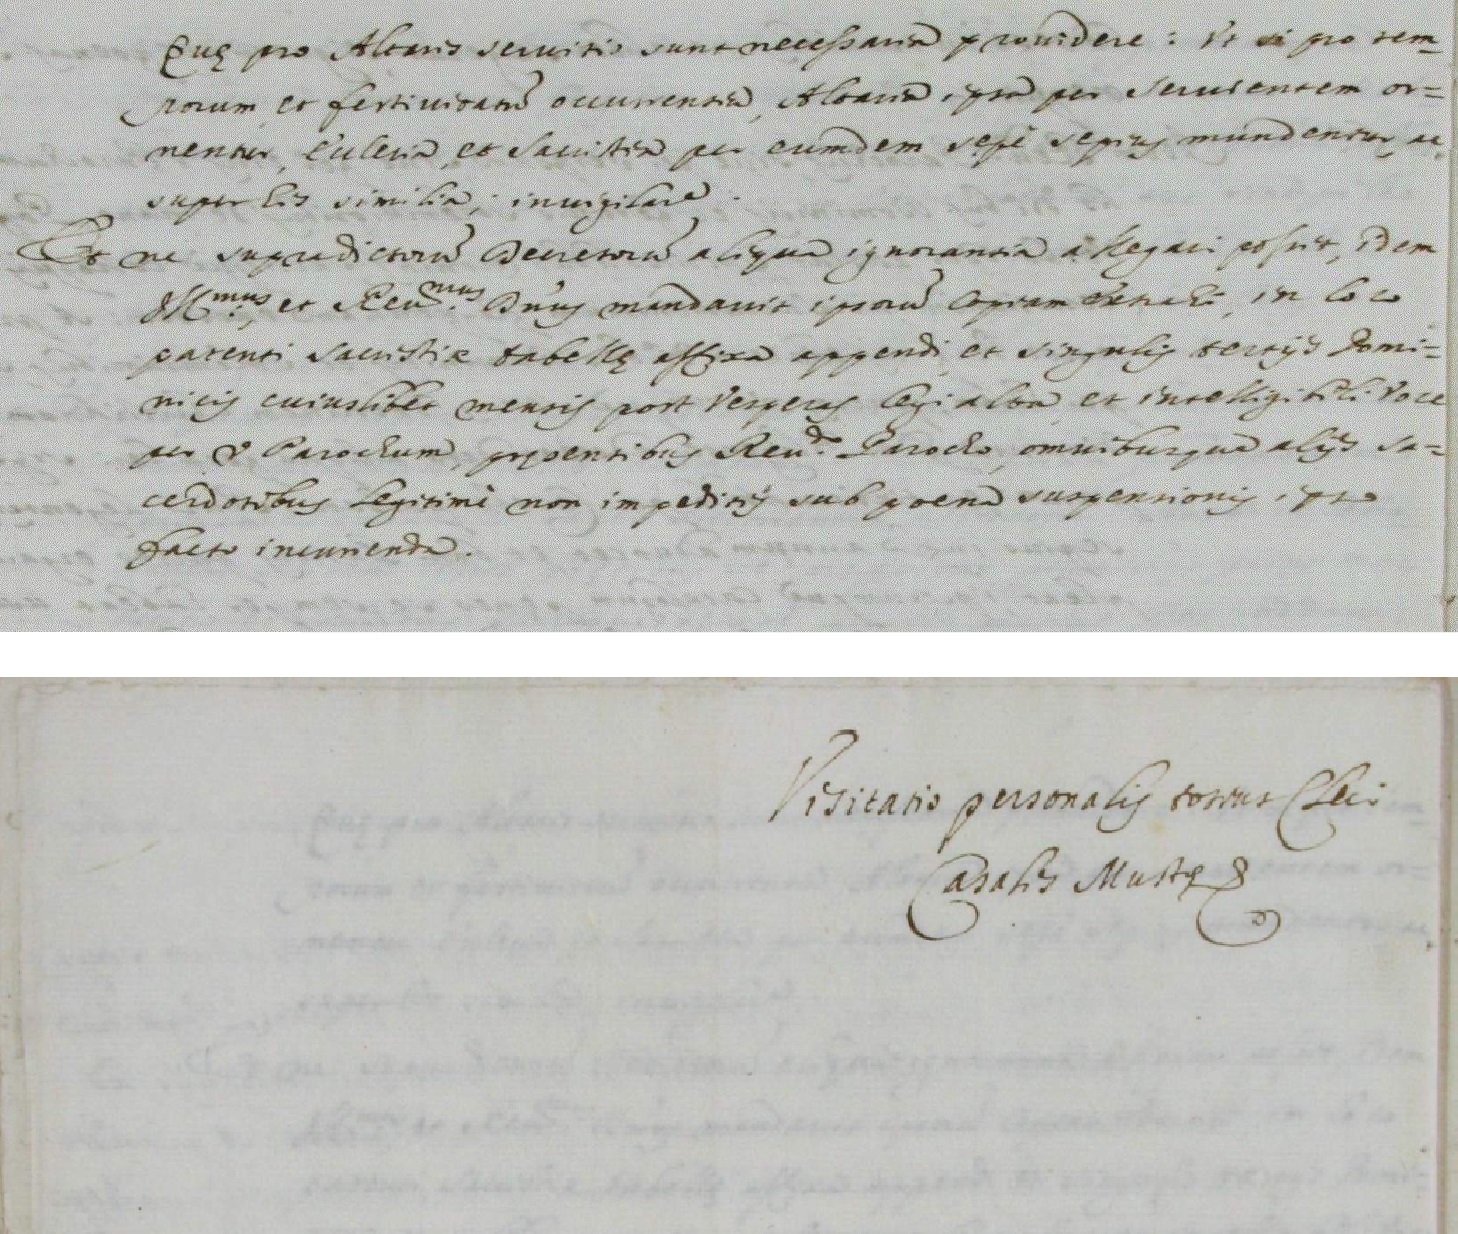 Quę pro Altaris seruitio sunt necessaria prouidere : Vt pro tem=
porum, et festiuitatũ occurrentia, Altaria ipsa per seruientem or=
nentur, Ecclesia, et Sacristia per eumdem sępè sępius mundentur, ac
super his similia; inuigilare.
Et ne supradictorũ Decretorũ aliqua ignorantia allegari possit, idem
Ill.mus, et Reu.mus Dñus mandauit ipsorũ copiam extrahi, in loco
patenti Sacristiæ tabellę affixa appendi, et singulis tertijs Domi=
nicis cuiuslibet mensis post Vesperas legi alta et intelligibili voce
per Parochum, pręsentibus Reu.do Parocho, omnibusque alijs Sa=
cerdotibus legitimè non impeditis sub poena suspensionis ipso
facto incurrenda.
Visitatio personalis totius Cleri
Casalis Mustę